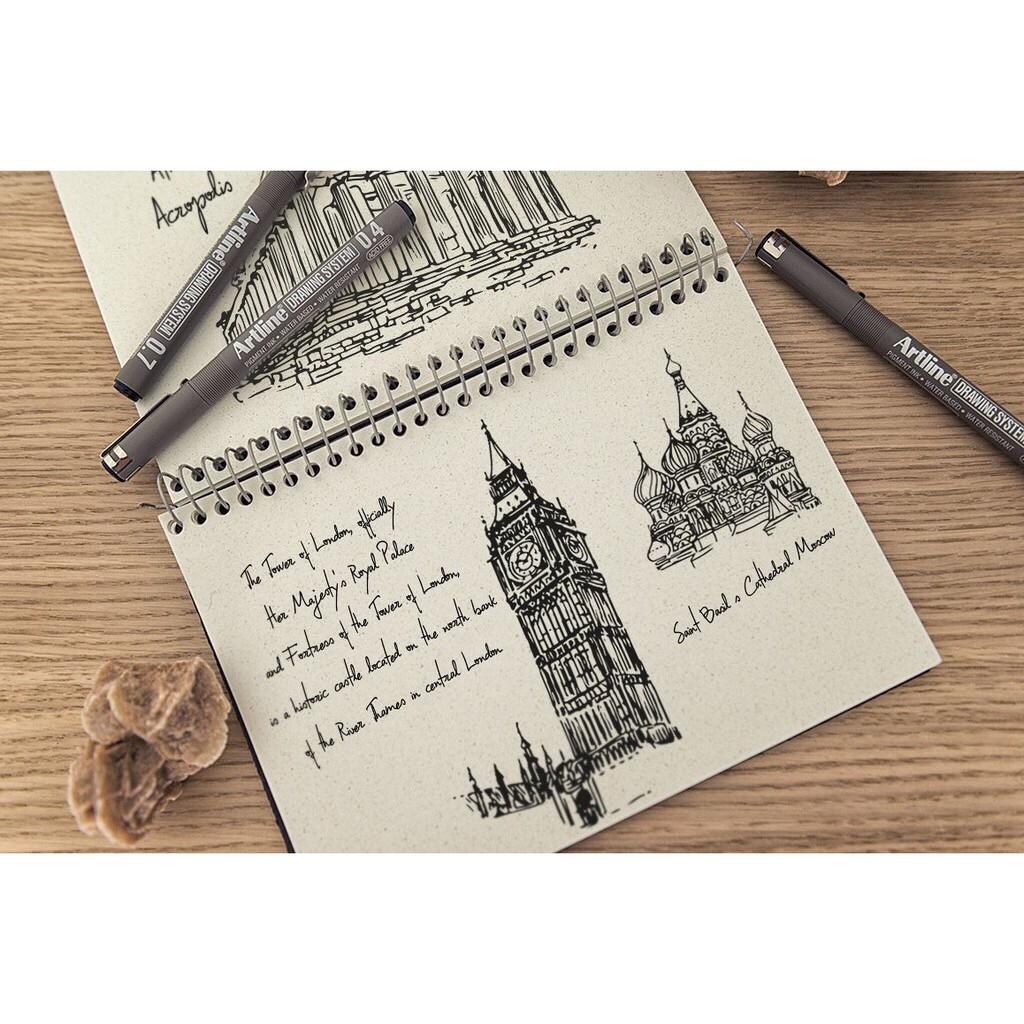 Acropolis
Artline DRAWING SYSTEM 0.7
Artline DRAWING SYSTEM 0.4
PIGMENT INK • WATER BASED • WATER RESISTANT ACID FREE
Artline DRAWING SYSTEM
PIGMENT INK • WATER BASED • WATER RESISTANT
The Tower of London, officially
Her Majesty's Royal Palace
and Fortress of the Tower of London,
is a historic castle located on the north bank
of the River Thames in central London
Saint Basil s Cathedral Moscow